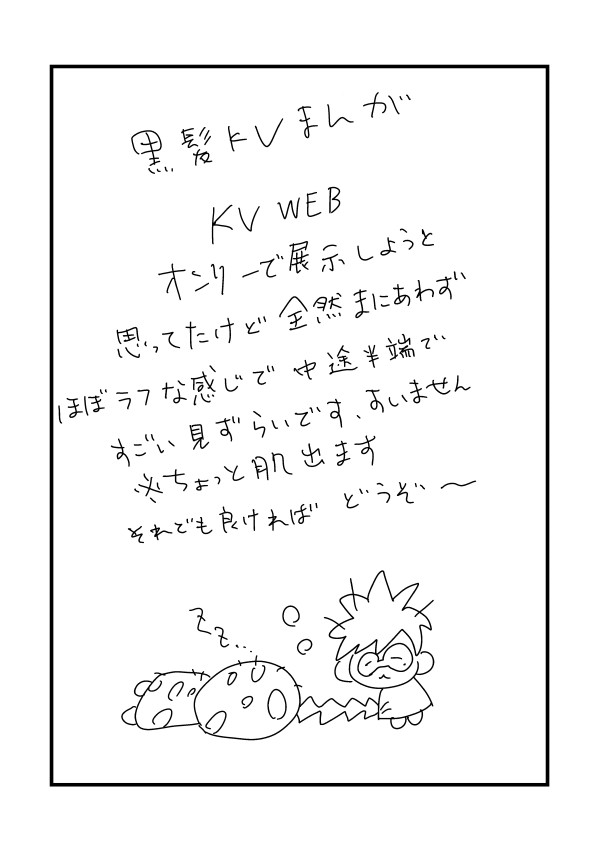 黒髪KVまんが
KV WEB
オンリーで展示しようと
思ってたけど全然まにあわず
ほぼラフな感じで中途半端で
すごい見ずらいです、すいません
※ちょっと肌出ます
それでも良ければ どうぞ〜
Zz...